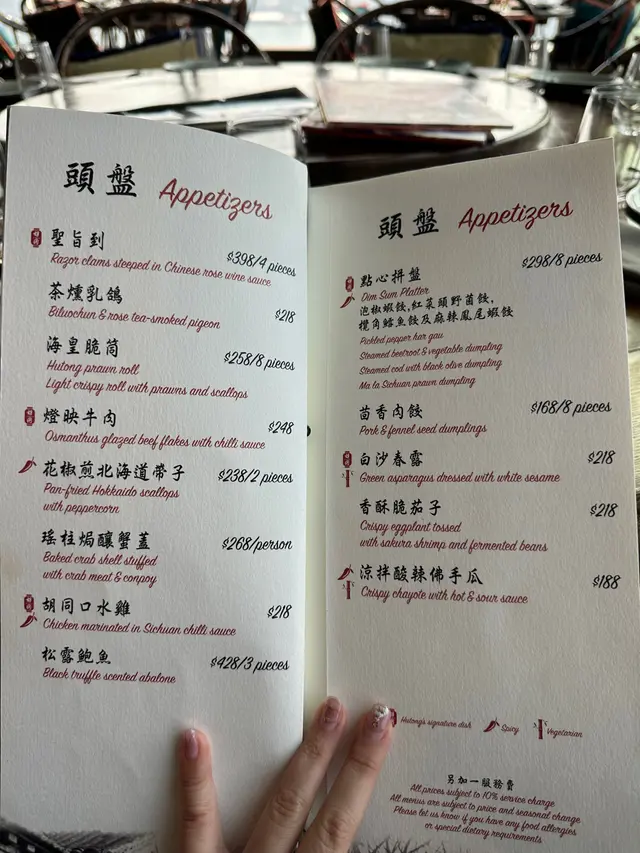 頭盤 Appetizers
聖旨到
$398/4 pieces
Razor clams steeped in Chinese rose wine sauce
茶燻乳鴿
Biluochun & rose tea-smoked pigeon
$218
海皇脆筒
Hutong prawn roll
$258/8 pieces
Light crispy roll with prawns and scallops
燈映牛肉
$248
Osmanthus glazed beef flakes with chilli sauce
花椒煎北海道帶子
$238/2 pieces
Pan-fried Hokkaido scallops
with peppercorn
瑤柱焗釀蟹蓋
$268/person
Baked crab shell stuffed
with crab meat & conpoy
胡同口水雞
$218
Chicken marinated in Sichuan chilli sauce
松露鮑魚
$428/3 pieces
Black truffle scented abalone
頭盤 Appetizers
點心拼盤
$298/8 pieces
Dim Sum Platter
泡椒蝦餃,紅菜頭野菌餃,
欖角鱈魚餃及麻辣鳳尾蝦餃
Pickled pepper har gau
Steamed beetroot & vegetable dumpling
Steamed cod with black olive dumpling
Ma la Sichuan prawn dumpling
茴香肉餃
$168/8 pieces
Pork & fennel seed dumplings
白沙春露
$218
Green asparagus dressed with white sesame
香酥脆茄子
$218
Crispy eggplant tossed
with sakura shrimp and fermented beans
涼拌酸辣佛手瓜
$188
Crispy chayote with hot & sour sauce
Hutong's signature dish
Spicy
Vegetarian
另加一服務費
All prices subject to 10% service charge
All menus are subject to price and seasonal change
Please let us know if you have any food allergies
or special dietary requirements